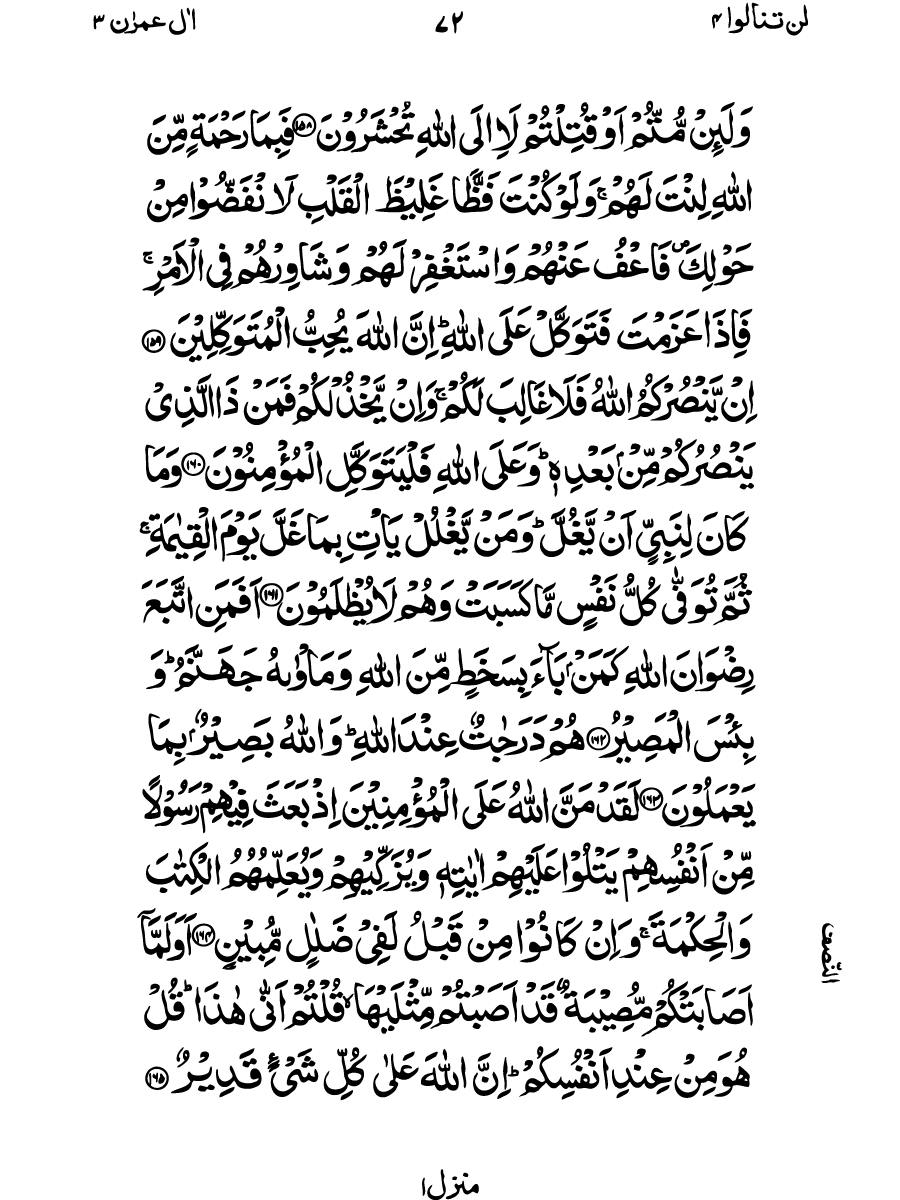 لن تنالوا ۴
۷۲
اٰل عمرٰن ۳
وَلَئِنْ مُّتُّمْ اَوْ قُتِلْتُمْ لَاِالَی اللّٰهِ تُحْشَرُوْنَ ﴿۱۵۸﴾ فَبِمَا رَحْمَةٍ مِّنَ
اللّٰهِ لِنْتَ لَهُمْ ۚ وَلَوْ كُنْتَ فَظًّا غَلِیْظَ الْقَلْبِ لَا نْفَضُّوْا مِنْ
حَوْلِكَ ۪ فَاعْفُ عَنْهُمْ وَاسْتَغْفِرْ لَهُمْ وَشَاوِرْهُمْ فِی الْاَمْرِ ۚ
فَاِذَا عَزَمْتَ فَتَوَكَّلْ عَلَی اللّٰهِ ؕ اِنَّ اللّٰهَ یُحِبُّ الْمُتَوَكِّلِیْنَ ﴿۱۵۹﴾
اِنْ یَّنْصُرْكُمُ اللّٰهُ فَلَا غَالِبَ لَكُمْ ۚ وَاِنْ یَّخْذُلْكُمْ فَمَنْ ذَا الَّذِیْ
یَنْصُرُكُمْ مِّنْۢ بَعْدِهٖ ؕ وَعَلَی اللّٰهِ فَلْیَتَوَكَّلِ الْمُؤْمِنُوْنَ ﴿۱۶۰﴾ وَمَا
كَانَ لِنَبِیٍّ اَنْ یَّغُلَّ ؕ وَمَنْ یَّغْلُلْ یَاْتِ بِمَا غَلَّ یَوْمَ الْقِیٰمَةِ ۚ
ثُمَّ تُوَفّٰی كُلُّ نَفْسٍ مَّا كَسَبَتْ وَهُمْ لَا یُظْلَمُوْنَ ﴿۱۶۱﴾ اَفَمَنِ اتَّبَعَ
رِضْوَانَ اللّٰهِ كَمَنْۢ بَآءَ بِسَخَطٍ مِّنَ اللّٰهِ وَمَاْوٰىهُ جَهَنَّمُ ؕ وَ
بِئْسَ الْمَصِیْرُ ﴿۱۶۲﴾ هُمْ دَرَجٰتٌ عِنْدَ اللّٰهِ ؕ وَاللّٰهُ بَصِیْرٌۢ بِمَا
یَعْمَلُوْنَ ﴿۱۶۳﴾ لَقَدْ مَنَّ اللّٰهُ عَلَی الْمُؤْمِنِیْنَ اِذْ بَعَثَ فِیْهِمْ رَسُوْلًا
مِّنْ اَنْفُسِهِمْ یَتْلُوْا عَلَیْهِمْ اٰیٰتِهٖ وَیُزَكِّیْهِمْ وَیُعَلِّمُهُمُ الْكِتٰبَ
وَالْحِكْمَةَ ۚ وَاِنْ كَانُوْا مِنْ قَبْلُ لَفِیْ ضَلٰلٍ مُّبِیْنٍ ﴿۱۶۴﴾ اَوَلَمَّاۤ
النّصف
اَصَابَتْكُمْ مُّصِیْبَةٌ قَدْ اَصَبْتُمْ مِّثْلَیْهَا ۙ قُلْتُمْ اَنّٰی هٰذَا ؕ قُلْ
هُوَ مِنْ عِنْدِ اَنْفُسِكُمْ ؕ اِنَّ اللّٰهَ عَلٰی كُلِّ شَیْءٍ قَدِیْرٌ ﴿۱۶۵﴾
منزل۱